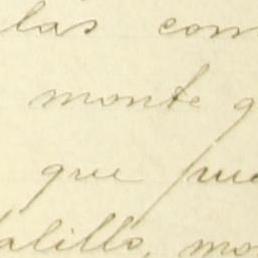 las com
monte q
que pue
alillo, mo